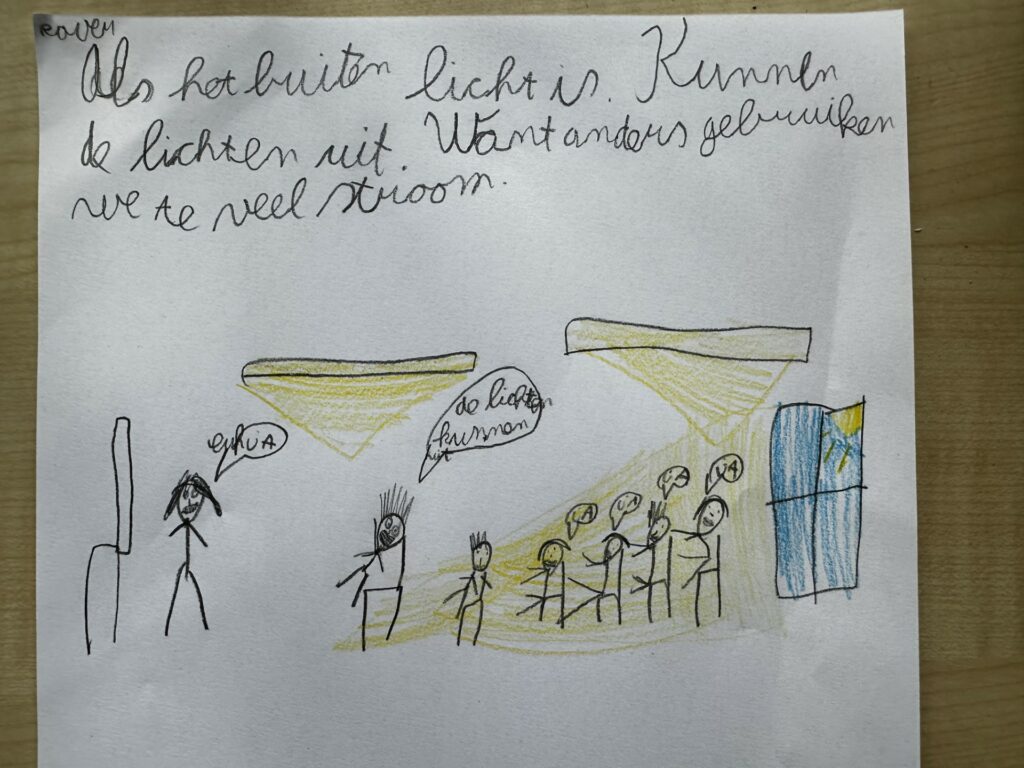 Als het buiten licht is. Kunnen
de lichten uit. Want anders gebruiken
we te veel stroom.
de lichten
kunnen
uit
JA
JA
JA
JA